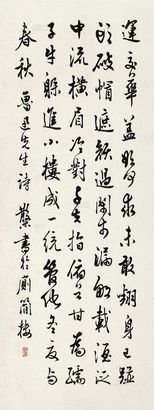 運交華蓋欲何求未敢翻身已碰
頭破帽遮顏過鬧市漏船載酒泛
中流橫眉冷對千夫指俯首甘為孺
子牛躲進小樓成一統管他冬夏與
春秋 魯迅先生詩 書於簡樓